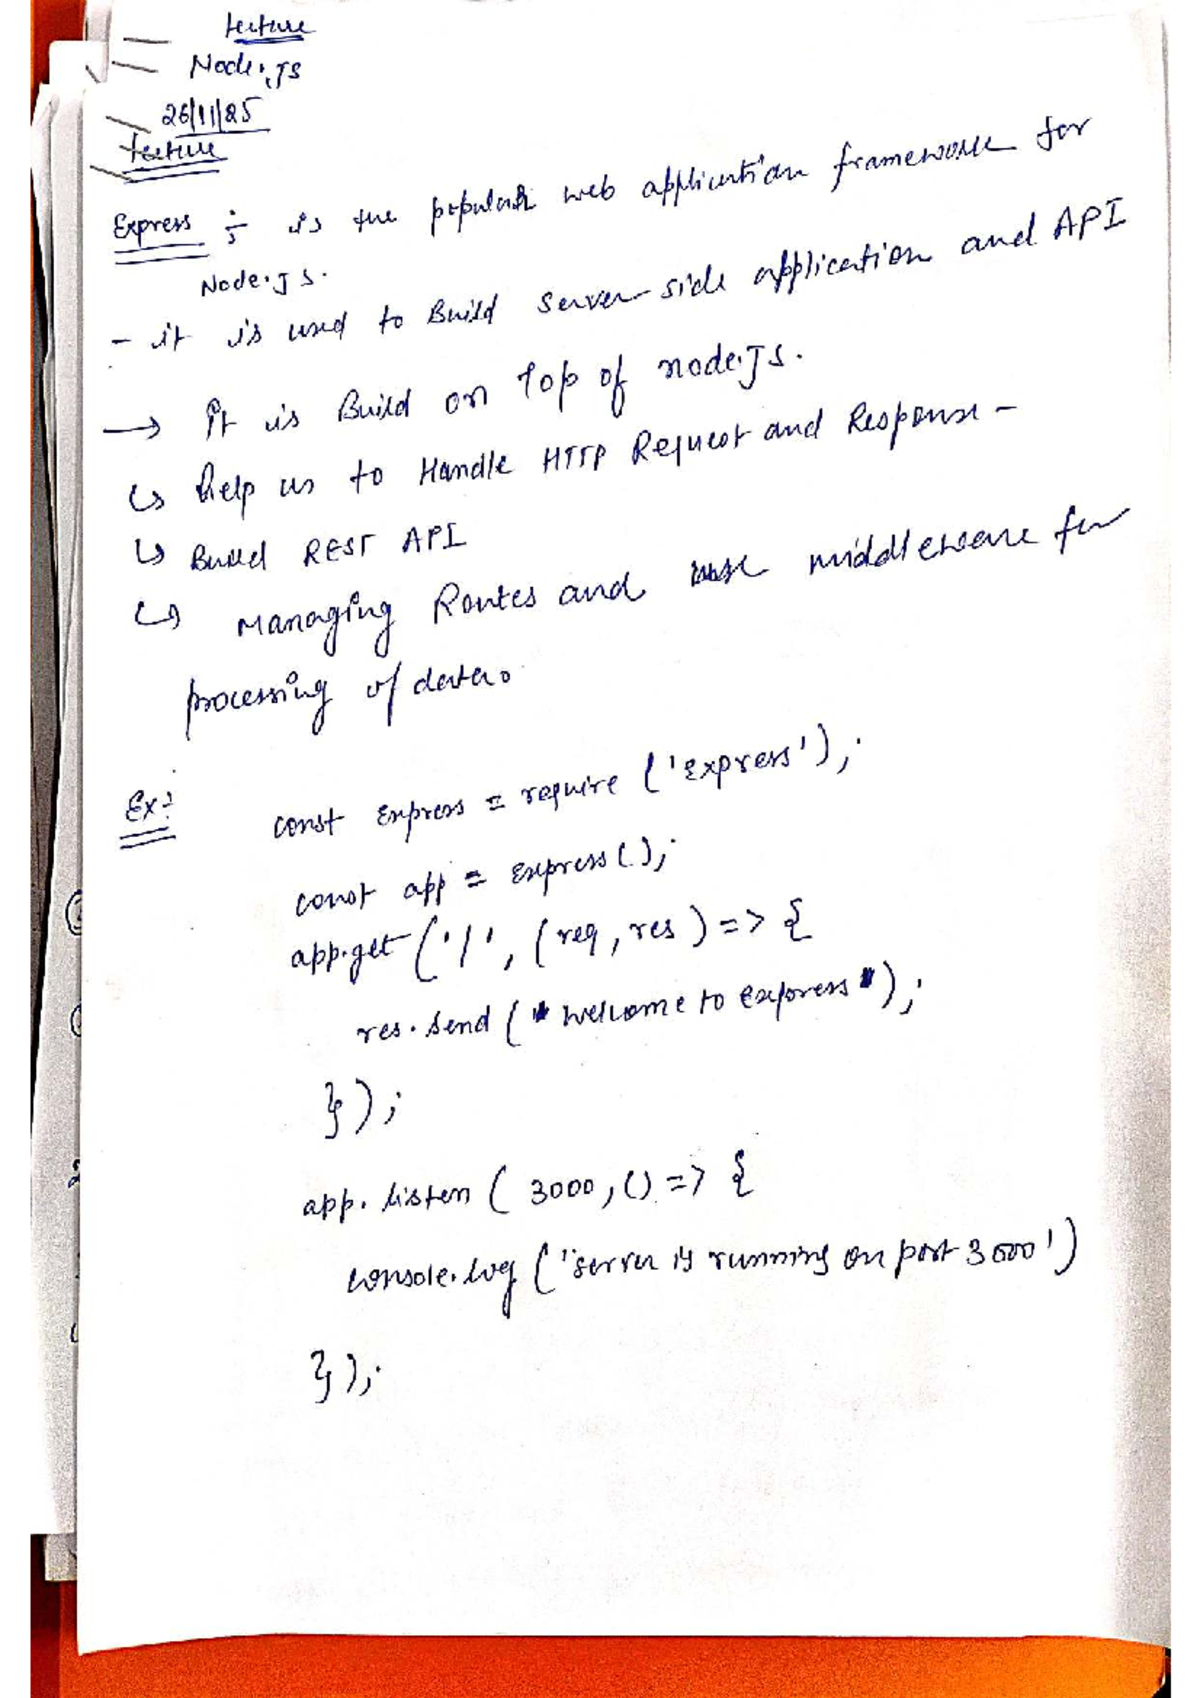 Lecture
Node.JS
26/11/25
Lecture
Express : is the popular web application framework for
Node.JS.
- it is used to Build Server side application and API
→ It is Build on Top of node.JS.
↳ help us to Handle HTTP Request and Response -
↳ Build REST API
↳ Managing Routes and use middleware for
processing of data.
Ex:
const Express = require ('Express');
const app = express();
app.get('/', (req, res) => {
res.send(" Welcome to express ");
});
app.listen( 3000, () => {
console.log ("server is running on port 3000')
});